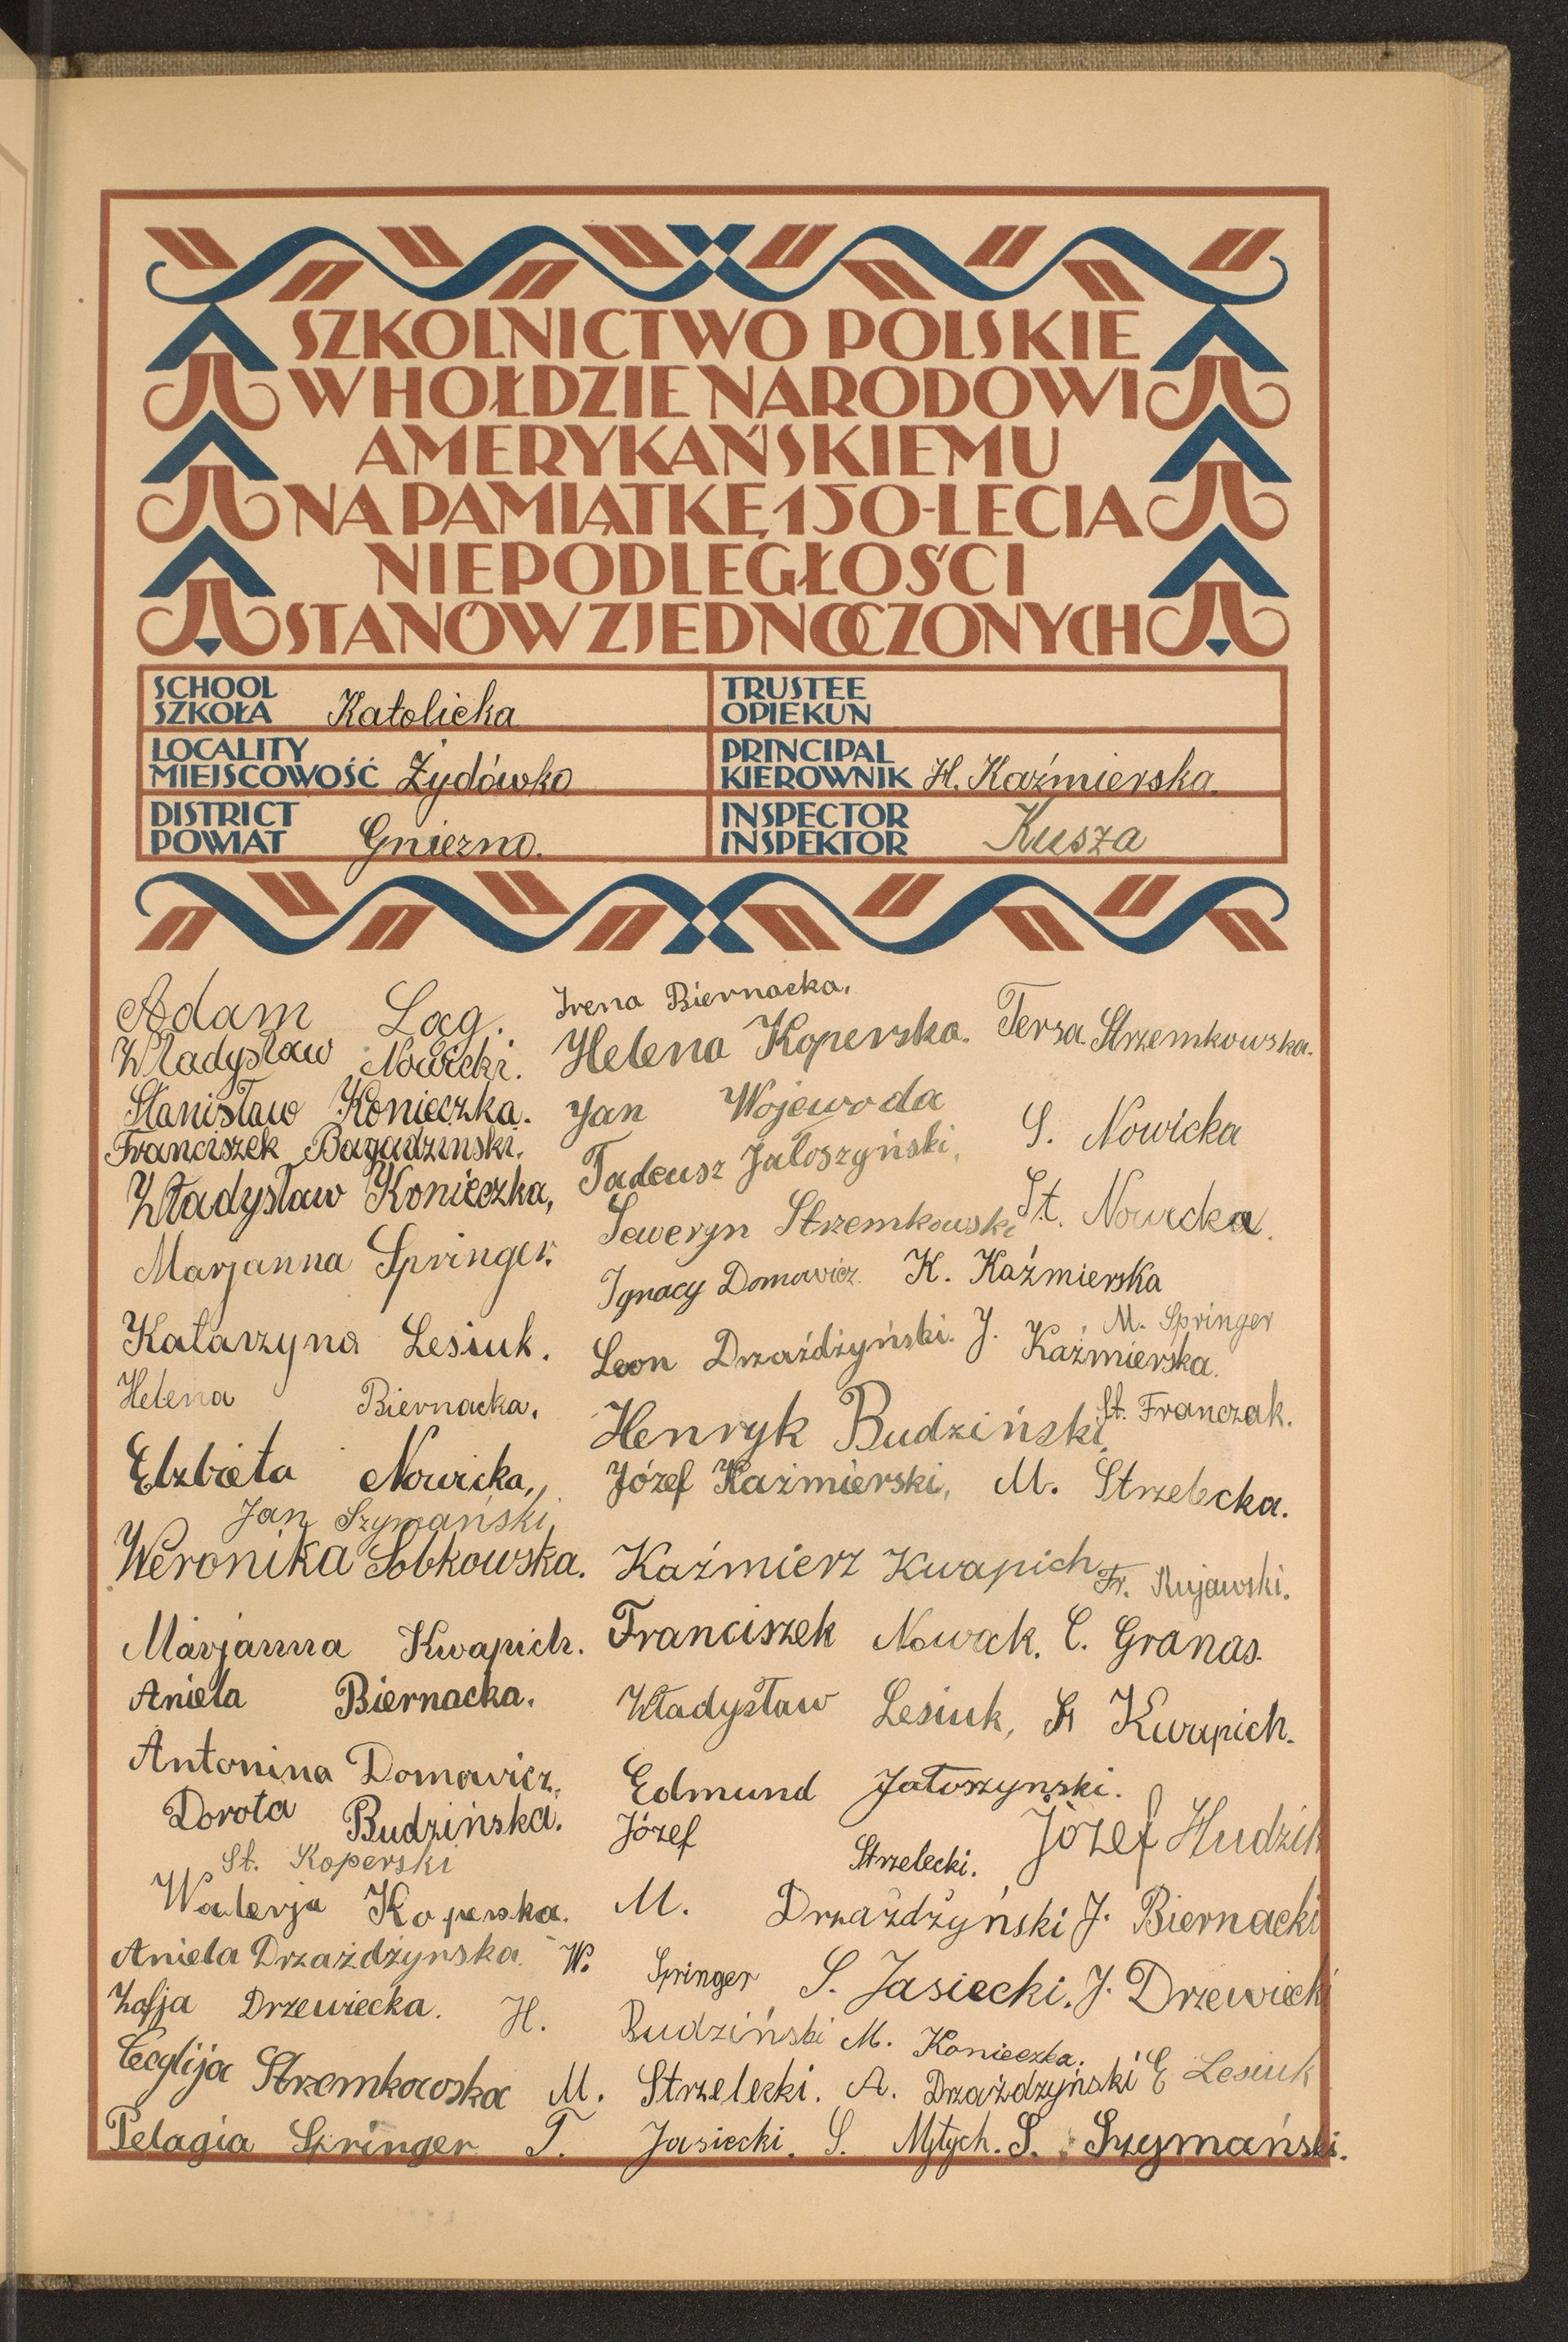 SZKOLNICTWO POLSKIE
W HOŁDZIE NARODOWI
AMERYKAŃSKIEMU
NA PAMIĄTKĘ 150-LECIA
NIEPODLEGŁOŚCI
STANÓW ZJEDNOCZONYCH
SCHOOL
SZKOŁA Katolicka
TRUSTEE
OPIEKUN
LOCALITY
MIEJSCOWOŚĆ Żydówko
PRINCIPAL
KIEROWNIK H. Kaźmierska.
DISTRICT
POWIAT Gniezno.
INSPECTOR
INSPEKTOR Kusza
Adam Log.
Władysław Nowicki.
Stanisław Konieczka.
Franciszek Bagadzinski.
Władysław Konieczka,
Marjanna Springer.
Katarzyna Lesiuk.
Helena Biernacka.
Elzbieta Nowicka,
Jan Szymański,
Weronika Sobkowska.
Marjanna Kwapich.
Aniela Biernacka.
Antonina Domowicz.
Dorota Budzińska.
St. Koperski
Walerja Koperska.
Aniela Drzażdżynska.
Zofja Drzewiecka.
Cecylija Strzemkowska
Pelagia Springer
Irena Biernacka.
Helena Koperska.
Jan Wojewoda
Tadeusz Jałoszyński,
Seweryn Strzemkowski
Ignacy Domowicz.
Leon Drzaźdżyński.
Henryk Budziński.
Józef Kaźmierski,
Kaźmierz Kwapich
Franciszek Nowak.
Władysław Lesiuk,
Edmund Jałoszynski.
Józef Strzelecki.
M. Drzażdżyński
W. Springer
H. Budziński
M. Strzelecki.
T. Jasiecki.
Tersa Strzemkowska.
S. Nowicka
St. Nowicka.
K. Kaźmierska
M. Springer
J. Kaźmierska.
St. Franczak.
M. Strzelecka.
Fr. Kujawski.
C. Granas.
Kwapich.
Józef Hudzik
J. Biernacki
S. Jasiecki.
J. Drzewiecki
M. Konieczka.
A. Drzażdzyński
E Lesiuk
S. Mytych.
S. Szymański.